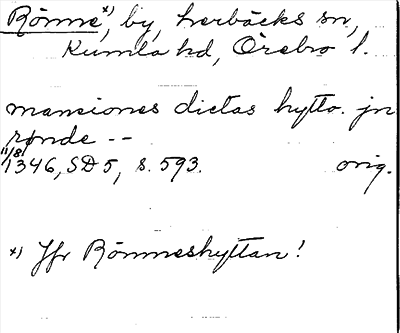 Rönne *), by, Lerbäcks sn,
Kumla hd, Örebro l.
mansiones dictas hytto. jn
rønde --
11/8 1346, SD 5, s. 593. orig.
*) Jfr Rönneshyttan!